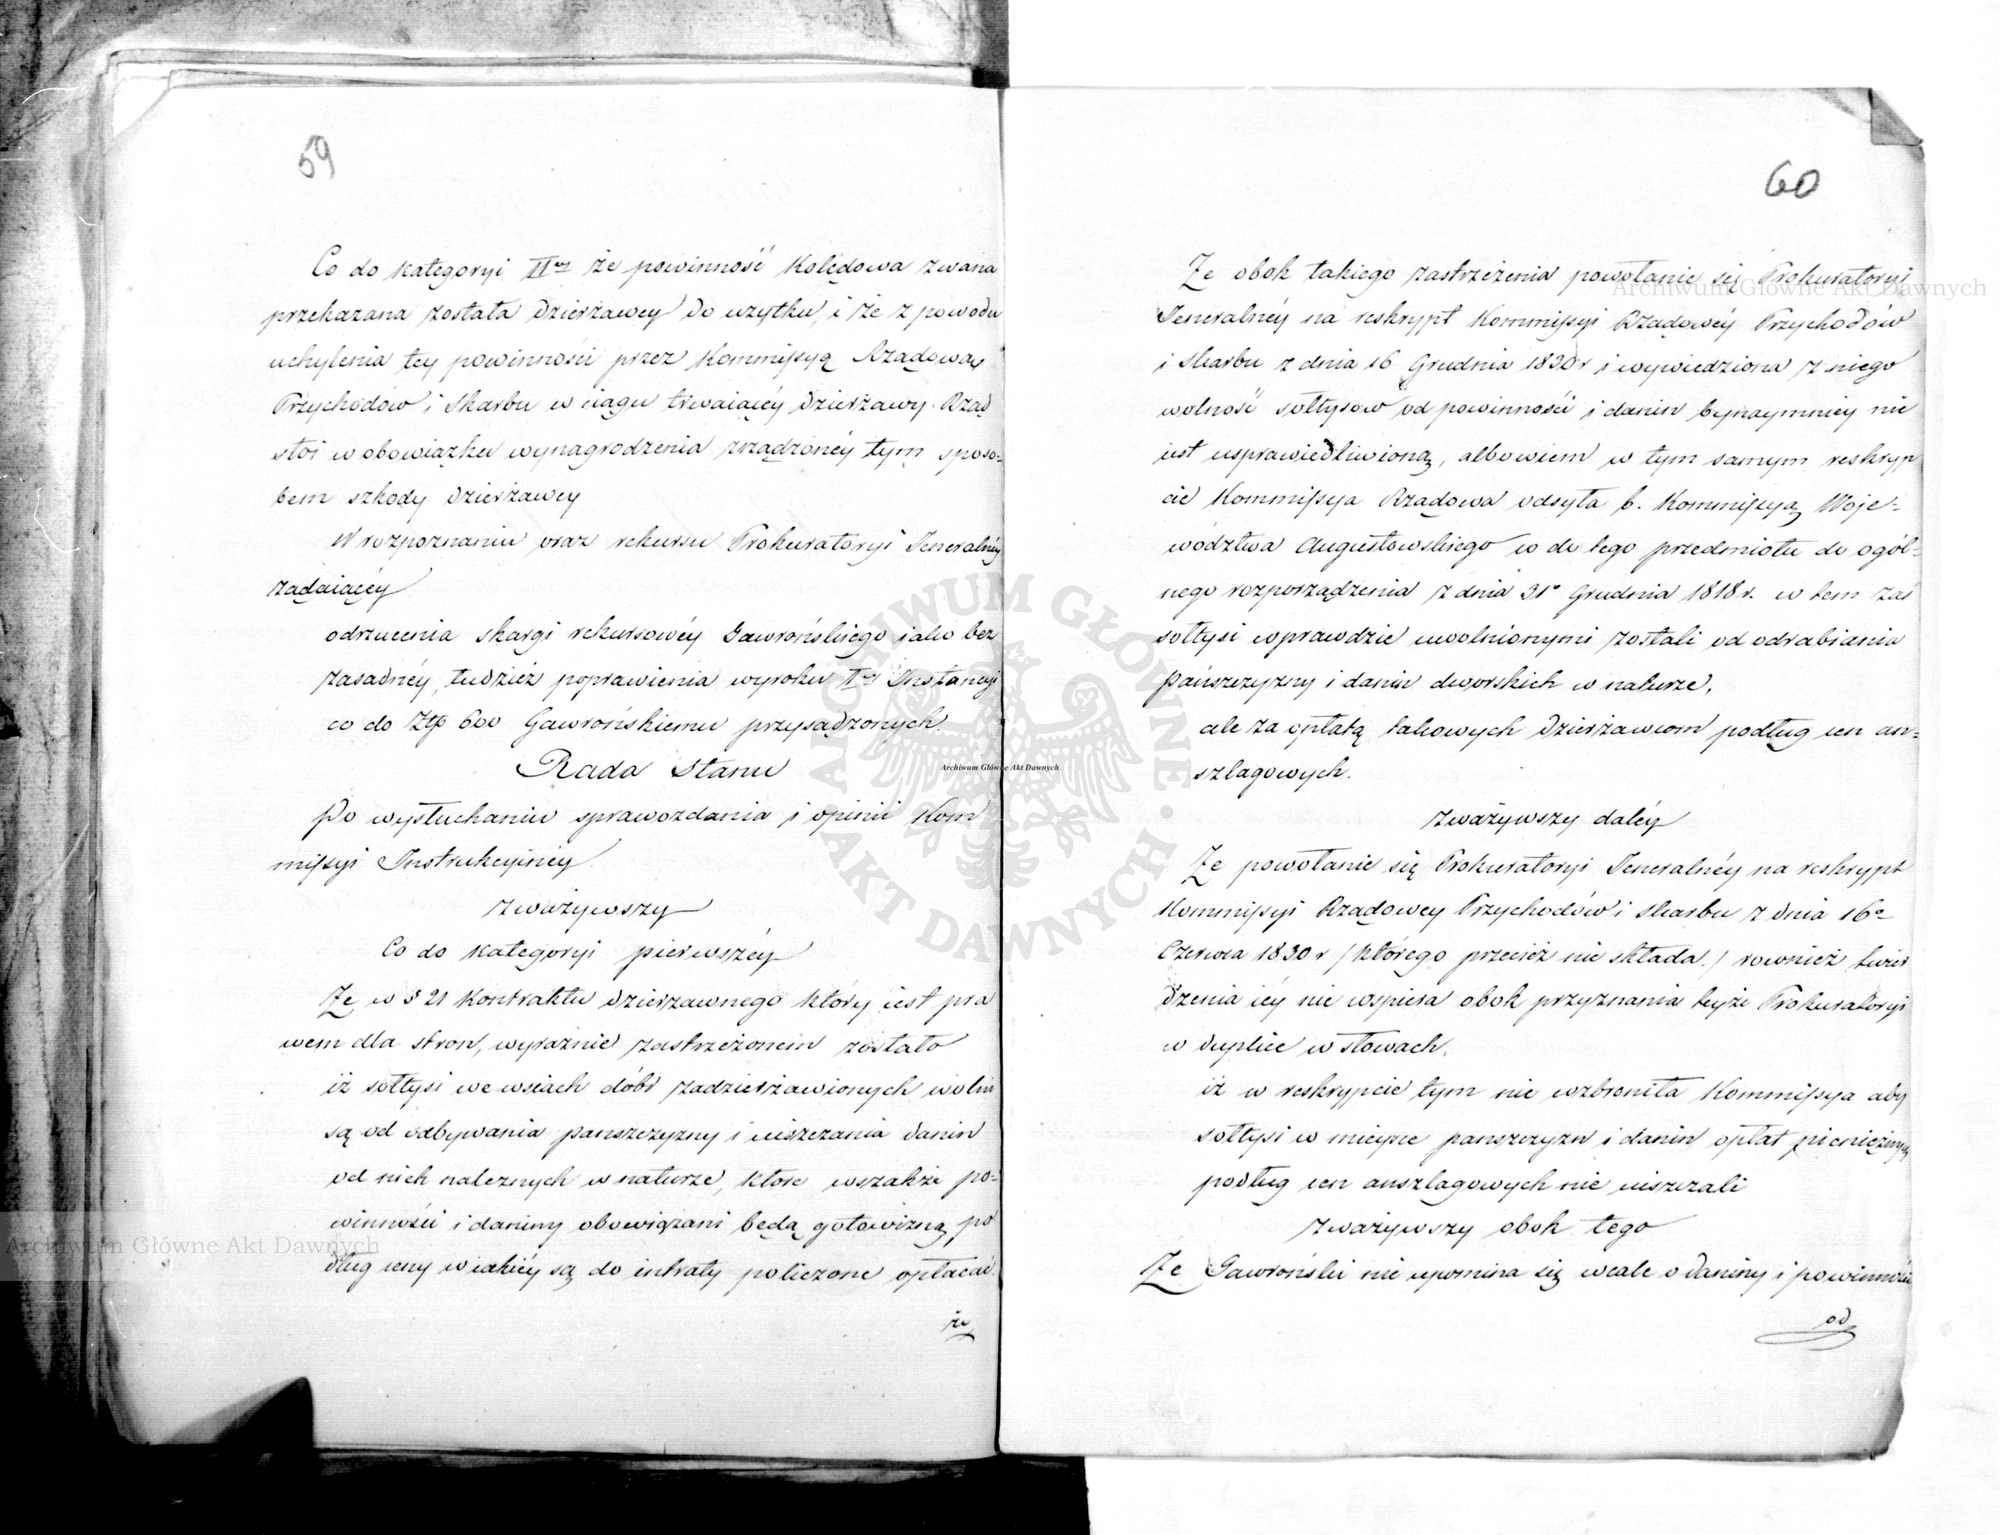 59
Co do kategoryi IIéy że powinność Kolędowa zwana
przekazana została Dzierżawcy do użytku, i że z powodu
uchylenia tey powinności przez Kommissyą Rządową
Przychodów i Skarbu w ciągu trwaiącéy Dzierżawy Rząd
stoi w obowiązku wynagrodzenia zrządzonéy tym sposo-
bem szkody Dzierżawcy
W rozpoznaniu oraz rekursu Prokuratoryi Jeneralnéy
żądaiącéy
odrzucenia skargi rekursowéy Gawrońskiego iako bez
zasadnéy, tudzież poprawienia wyroku Iéy Instancyi
co do Złp 600 Gawrońskiemu przysądzonych.
Rada Stanu
Po wysłuchaniu sprawozdania i opinii Kom
missyi Instrukcyinéy
zważywszy
Co do kategoryi pierwszéy
Że w § 21 Kontraktu Dzierżawnego który iest pra
wem dla stron, wyraźnie zastrzeżonem zostało
iż sołtysi we wsiach dóbr zadzierżawionych wolni
są od odbywania panszczyzny i uiszczania danin
od nich należnych w naturze, które wszakże po-
winności i daniny obowiązani będą gotowizną po
dług ceny w iakiéy są do intraty policzone opłacać.
że
60
Że obok takiego zastrzeżenia powołanie się Prokuratoryi
Jeneralnéy na reskrypt Kommissyi Rządowéy Przychodów
i Skarbu z dnia 16 Grudnia 1830 r i wywiedziona z niego
wolność sołtysow od powinności i danin bynaymniey nie
iest usprawiedliwioną, albowiem w tym samym reskryp
cie Kommissya Rządowa odsyła b. Kommissyą Woje-
wództwa Augustowskiego co do tego przedmiotu do ogól-
nego rozporządzenia z dnia 31o Grudnia 1818 r. w tem zaś
sołtysi wprawdzie uwolnionymi zostali od odrabiania
pańszczyzny i danin dworskich w naturze,
ale za opłatą takowych Dzierżawcom podług cen an-
szlagowych.
zważywszy daléy
Że powołanie się Prokuratoryi Jeneralnéy na reskrypt
Kommissyi Rządowey Przychodów i Skarbu z dnia 16o
Czerwca 1830 r /którego przecież nie składa./ rownież twier
dzenia iéy nie wspiera obok przyznania teyże Prokuratoryi
w duplice w słowach.
iż w reskrypcie tym nie wzbroniła Kommissya aby
sołtysi w mieysce panszczyzn i danin opłat pieniężnych
podług cen anszlagowych nie uiszczali
zważywszy obok tego
Że Gawroński nie upomina się wcale o daniny i powinności
od
Archiwum Główne Akt Dawnych
Archiwum Główne Akt Dawnych
Archiwum Główne Akt Dawnych
ARCHIWUM GŁÓWNE · AKT DAWNYCH ·